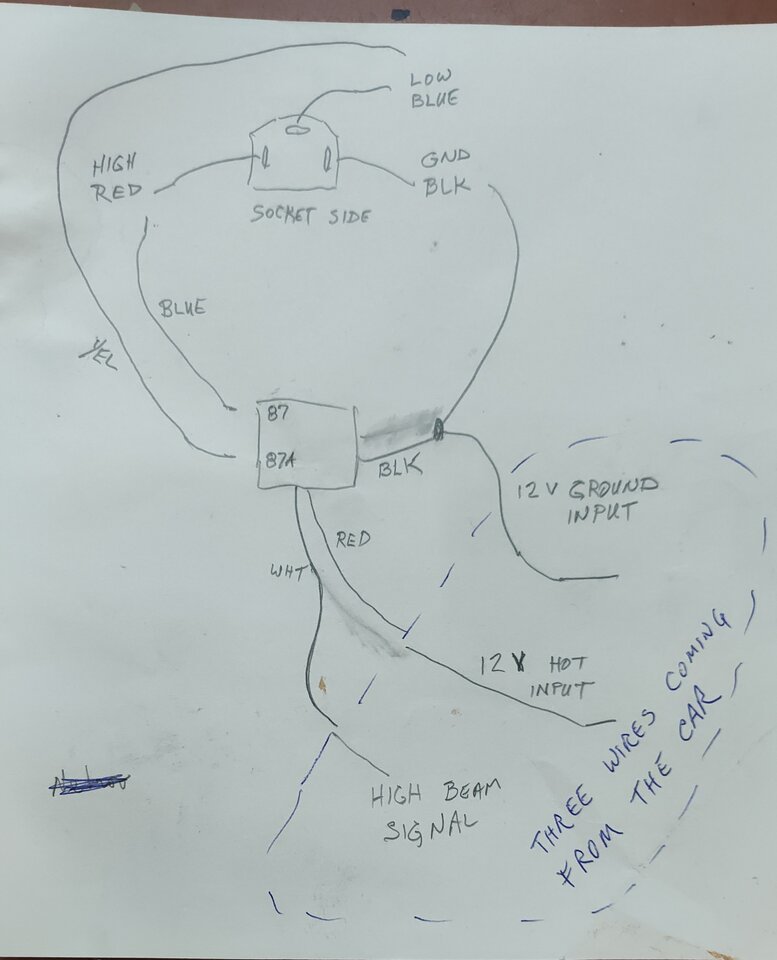 LOW
BLUE
HIGH
RED
GND
BLK
SOCKET SIDE
BLUE
YEL
87
87A
BLK
12 V GROUND
INPUT
RED
WHT
12 V HOT
INPUT
HIGH BEAM
SIGNAL
THREE WIRES COMING
FROM THE CAR